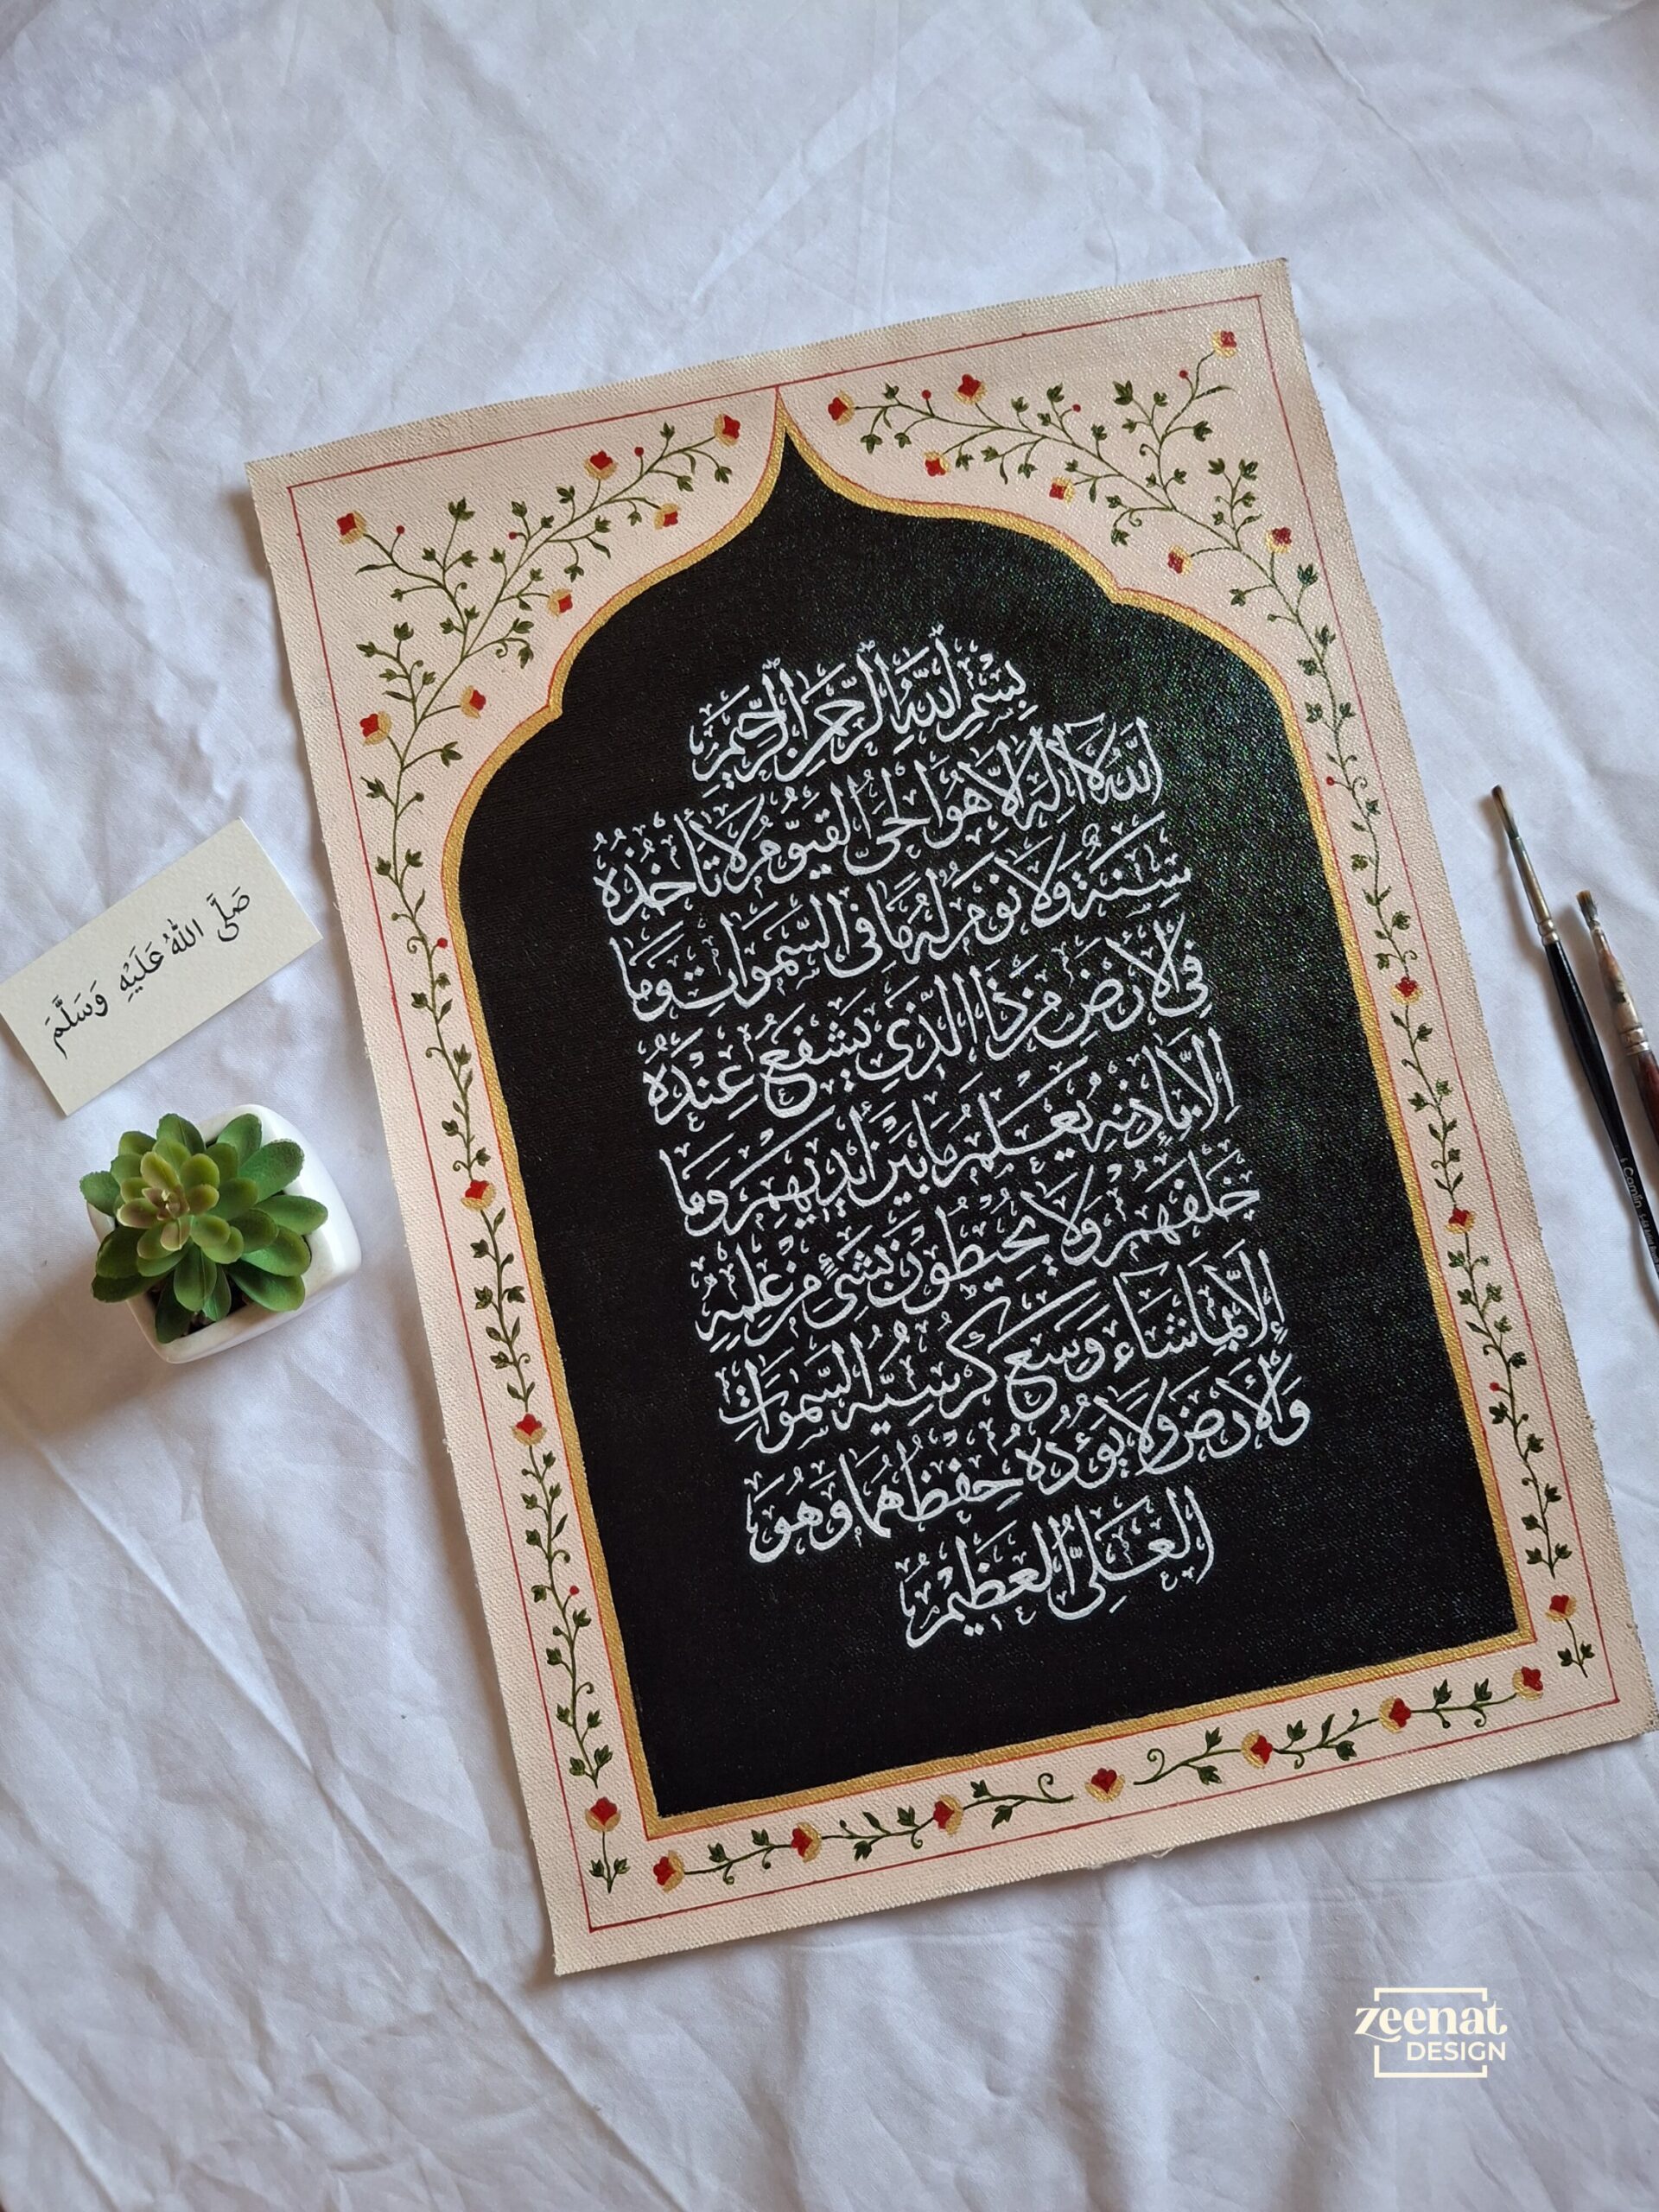 بِسْمِ اللَّهِ الرَّحْمَنِ الرَّحِيمِ
اللَّهُ لَا إِلَهَ إِلَّا هُوَ الْحَيُّ الْقَيُّومُ لَا تَأْخُذُهُ
سِنَةٌ وَلَا نَوْمٌ لَهُ مَا فِي السَّمَوَاتِ وَمَا
فِي الْأَرْضِ مَنْ ذَا الَّذِي يَشْفَعُ عِنْدَهُ
إِلَّا بِإِذْنِهِ يَعْلَمُ مَا بَيْنَ أَيْدِيهِمْ وَمَا
خَلْفَهُمْ وَلَا يُحِيطُونَ بِشَيْءٍ مِنْ عِلْمِهِ
إِلَّا بِمَا شَاءَ وَسِعَ كُرْسِيُّهُ السَّمَوَاتِ
وَالْأَرْضَ وَلَا يَؤُدُهُ حِفْظُهُمَا وَهُوَ
الْعَلِيُّ الْعَظِيمُ
صَلَّى اللهُ عَلَيْهِ وَسَلَّمَ
zeenat
DESIGN